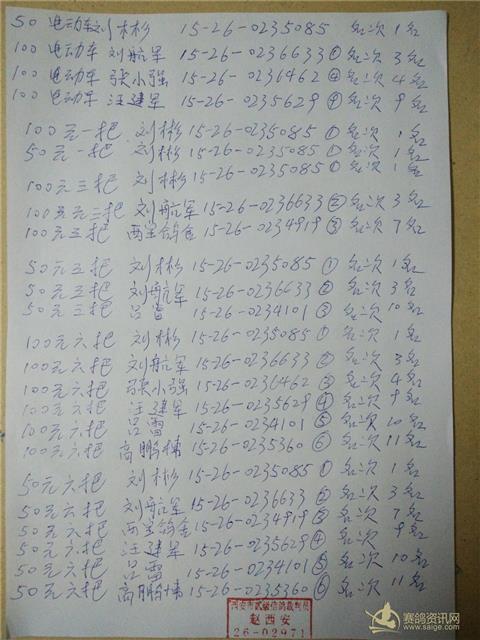 50 电动车 刘彬 15-26-0235085 名次 1名
100 电动车 刘航军 15-26-0236633 ① 名次 3名
100 电动车 张小强 15-26-0236462 ④ 名次 4名
100 电动车 汪建军 15-26-0235629 ④ 名次 9名
100元一把 刘彬 15-26-0235085 ① 名次 1名
50元一把 刘彬 15-26-0235085 ① 名次 1名
100元三把 刘彬 15-26-0235085 ① 名次 1名
100元三把 刘航军 15-26-0236633 ② 名次 3名
100元三把 西宝鸽舍 15-26-0234919 ③ 名次 7名
50元三把 刘彬 15-26-0235085 ① 名次 1名
50元三把 刘航军 15-26-0236633 ② 名次 3名
50元三把 吕雷 15-26-0234101 ③ 名次 10名
100元六把 刘彬 15-26-0235085 ① 名次 1名
100元六把 刘航军 15-26-0236633 ② 名次 3名
100元六把 张小强 15-26-0236462 ③ 名次 4名
100元六把 汪建军 15-26-0235629 ④ 名次 9名
100元六把 吕雷 15-26-0234101 ⑤ 名次 10名
100元六把 高鹏博 15-26-0235360 ⑥ 名次 11名
50元六把 刘彬 15-26-0235085 ① 名次 1名
50元六把 刘航军 15-26-0236633 ② 名次 3名
50元六把 西宝鸽舍 15-26-0234919 ③ 名次 7名
50元六把 汪建军 15-26-0235629 ④ 名次 9名
50元六把 吕雷 15-26-0234101 ⑤ 名次 10名
50元六把 高鹏博 15-26-0235360 ⑥ 名次 11名
西安市贰级信鸽裁判员
赵西安
26-02971
赛鸽资讯网
www.saige.com